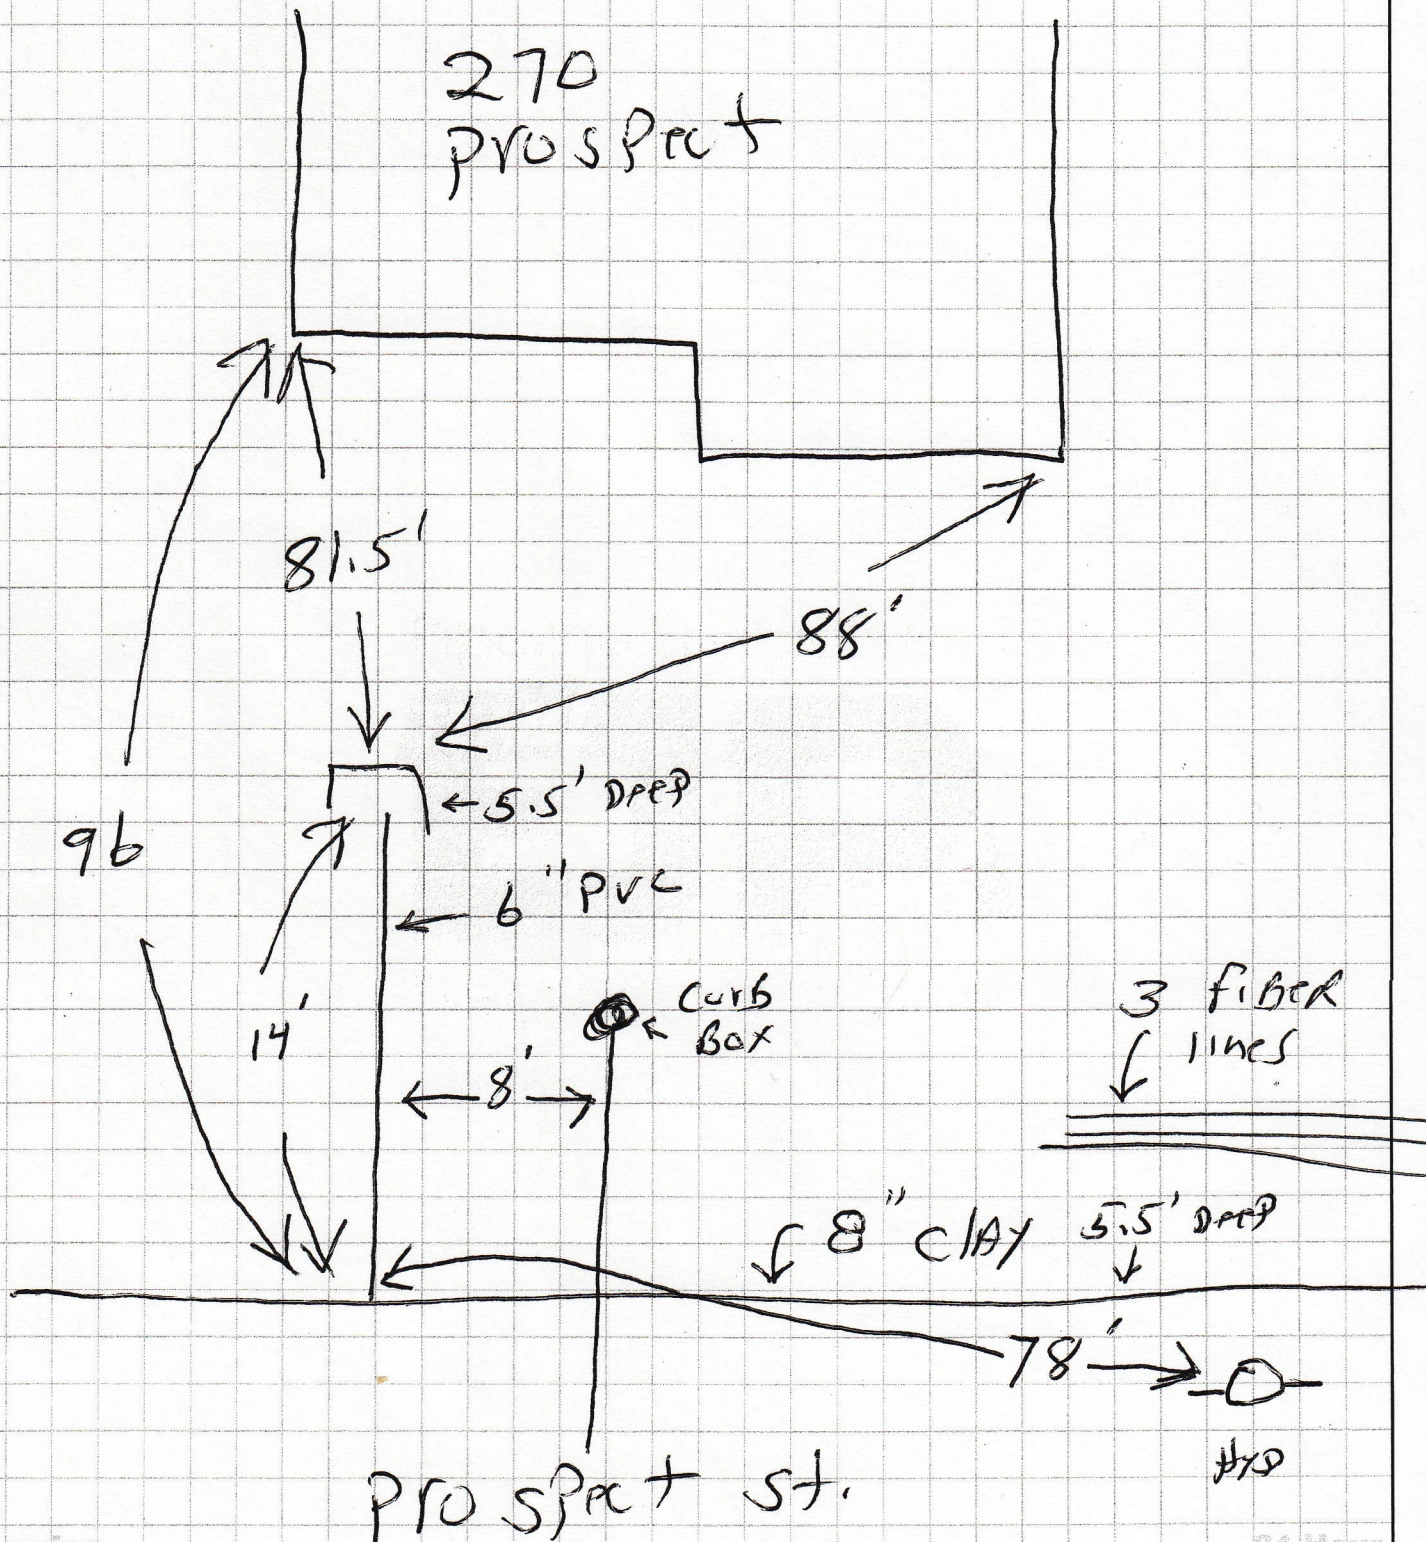 270
prospect
81.5'
88'
5.5' DEEP
96
6" PVC
Curb
Box
3 fiBER
lines
14'
8'
8" ClAY
5.5' DEEP
78'
HYD
prospect st.